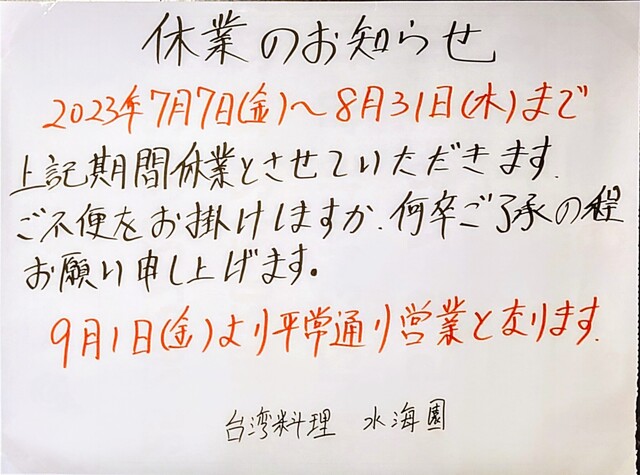 休業のお知らせ
2023年7月7日(金)～8月31日(木)まで
上記期間休業とさせていただきます.
ご不便をお掛けしますが.何卒ご了承の程
お願い申し上げます。
9月1日(金)より平常通り営業となります.
台湾料理 水海園